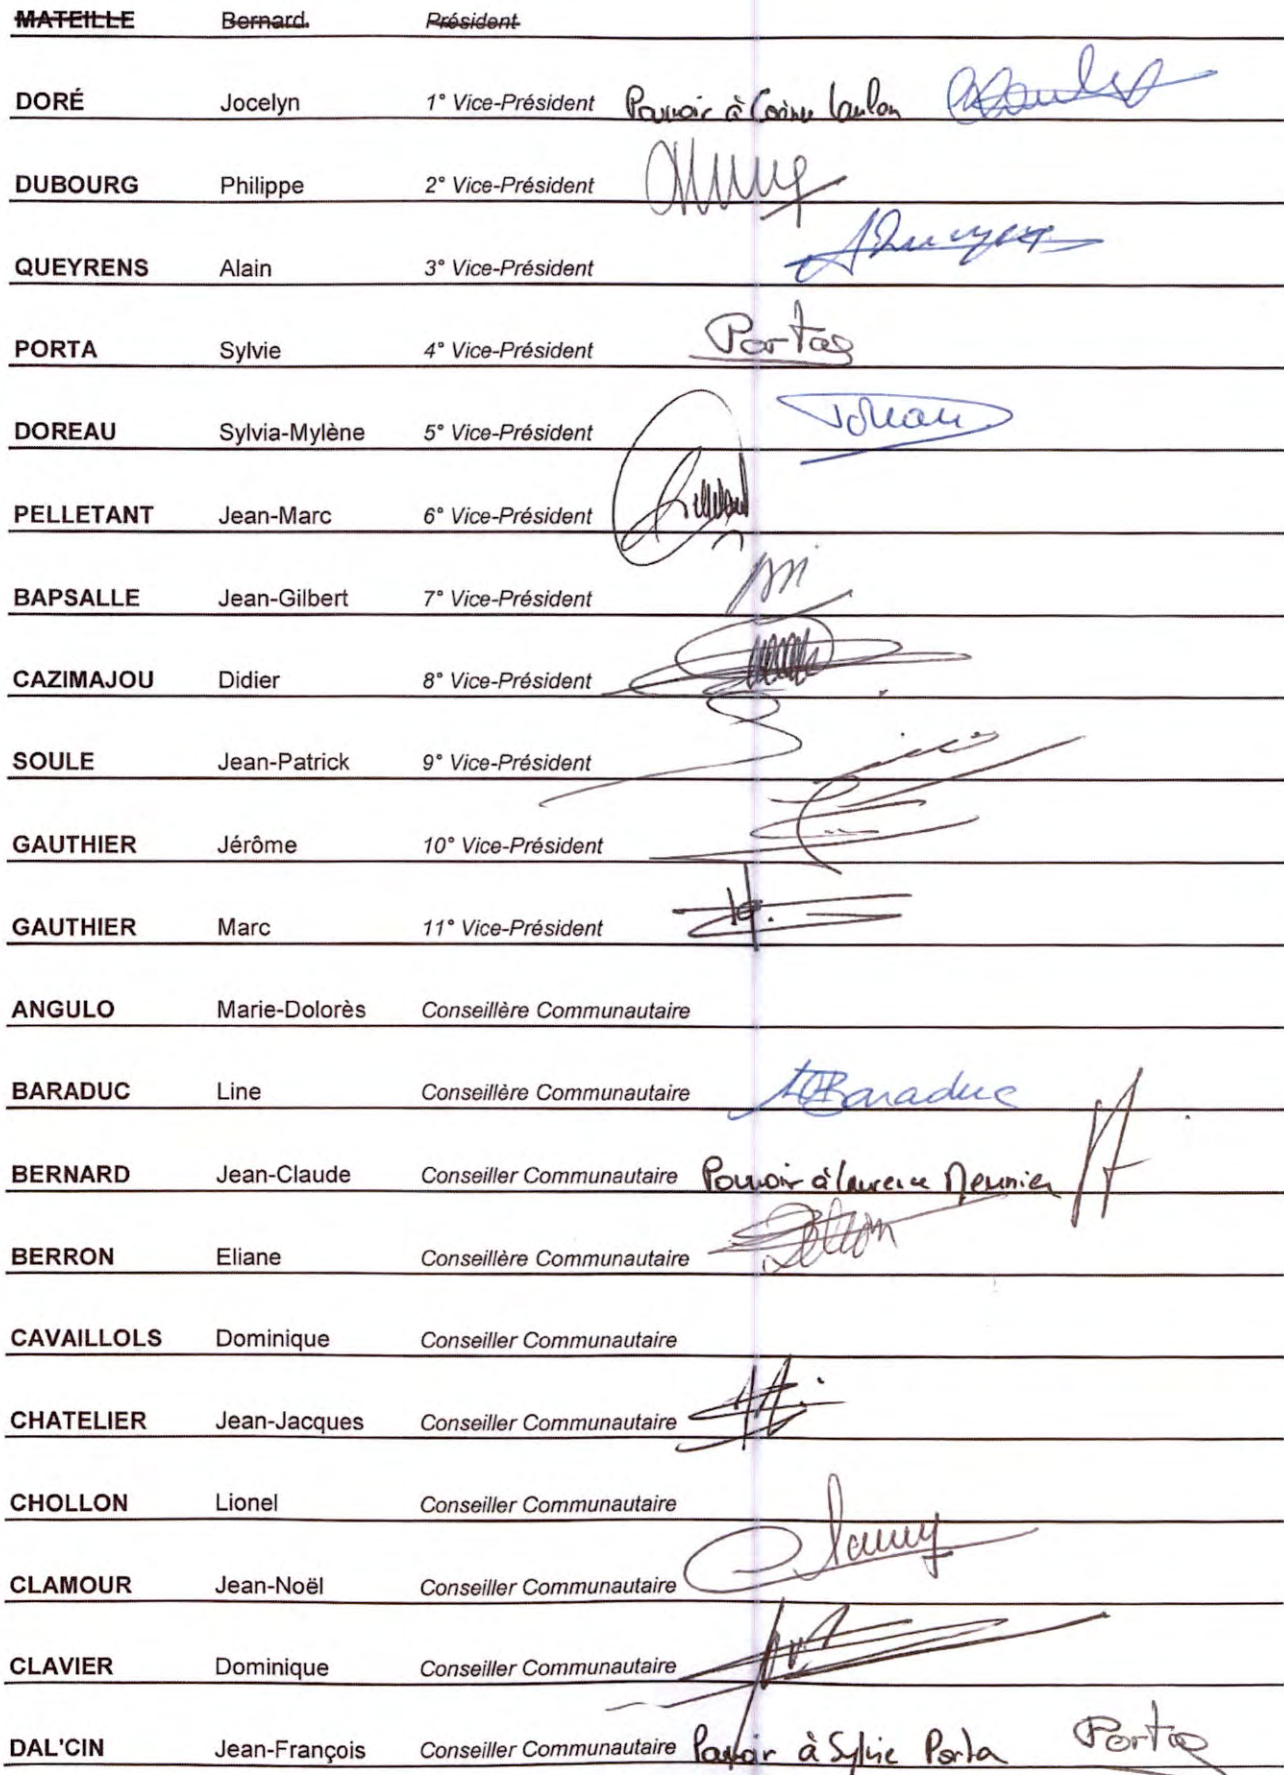 MATEILLE Bernard Président
DORÉ Jocelyn 1° Vice-Président Pouvoir à Corinne Laulan
DUBOURG Philippe 2° Vice-Président
QUEYRENS Alain 3° Vice-Président
PORTA Sylvie 4° Vice-Président Porta
DOREAU Sylvia-Mylène 5° Vice-Président
PELLETANT Jean-Marc 6° Vice-Président
BAPSALLE Jean-Gilbert 7° Vice-Président
CAZIMAJOU Didier 8° Vice-Président
SOULE Jean-Patrick 9° Vice-Président
GAUTHIER Jérôme 10° Vice-Président
GAUTHIER Marc 11° Vice-Président
ANGULO Marie-Dolorès Conseillère Communautaire
BARADUC Line Conseillère Communautaire Baraduc
BERNARD Jean-Claude Conseiller Communautaire Pouvoir à Laurence Meunier
BERRON Eliane Conseillère Communautaire
CAVAILLOLS Dominique Conseiller Communautaire
CHATELIER Jean-Jacques Conseiller Communautaire
CHOLLON Lionel Conseiller Communautaire
CLAMOUR Jean-Noël Conseiller Communautaire
CLAVIER Dominique Conseiller Communautaire
DAL'CIN Jean-François Conseiller Communautaire Pouvoir à Sylvie Porta Porta